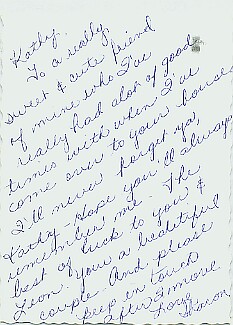 Kathy,
To a really,
sweet & cute friend
of mine who I've
really had alot of good
times with when I've
come over to your house
I'll never forget ya,
Kathy - Hope you'll always
remember me. The
best of luck to you &
Leon. your a beautiful
couple. And please
keep in touch
Love
Sharon